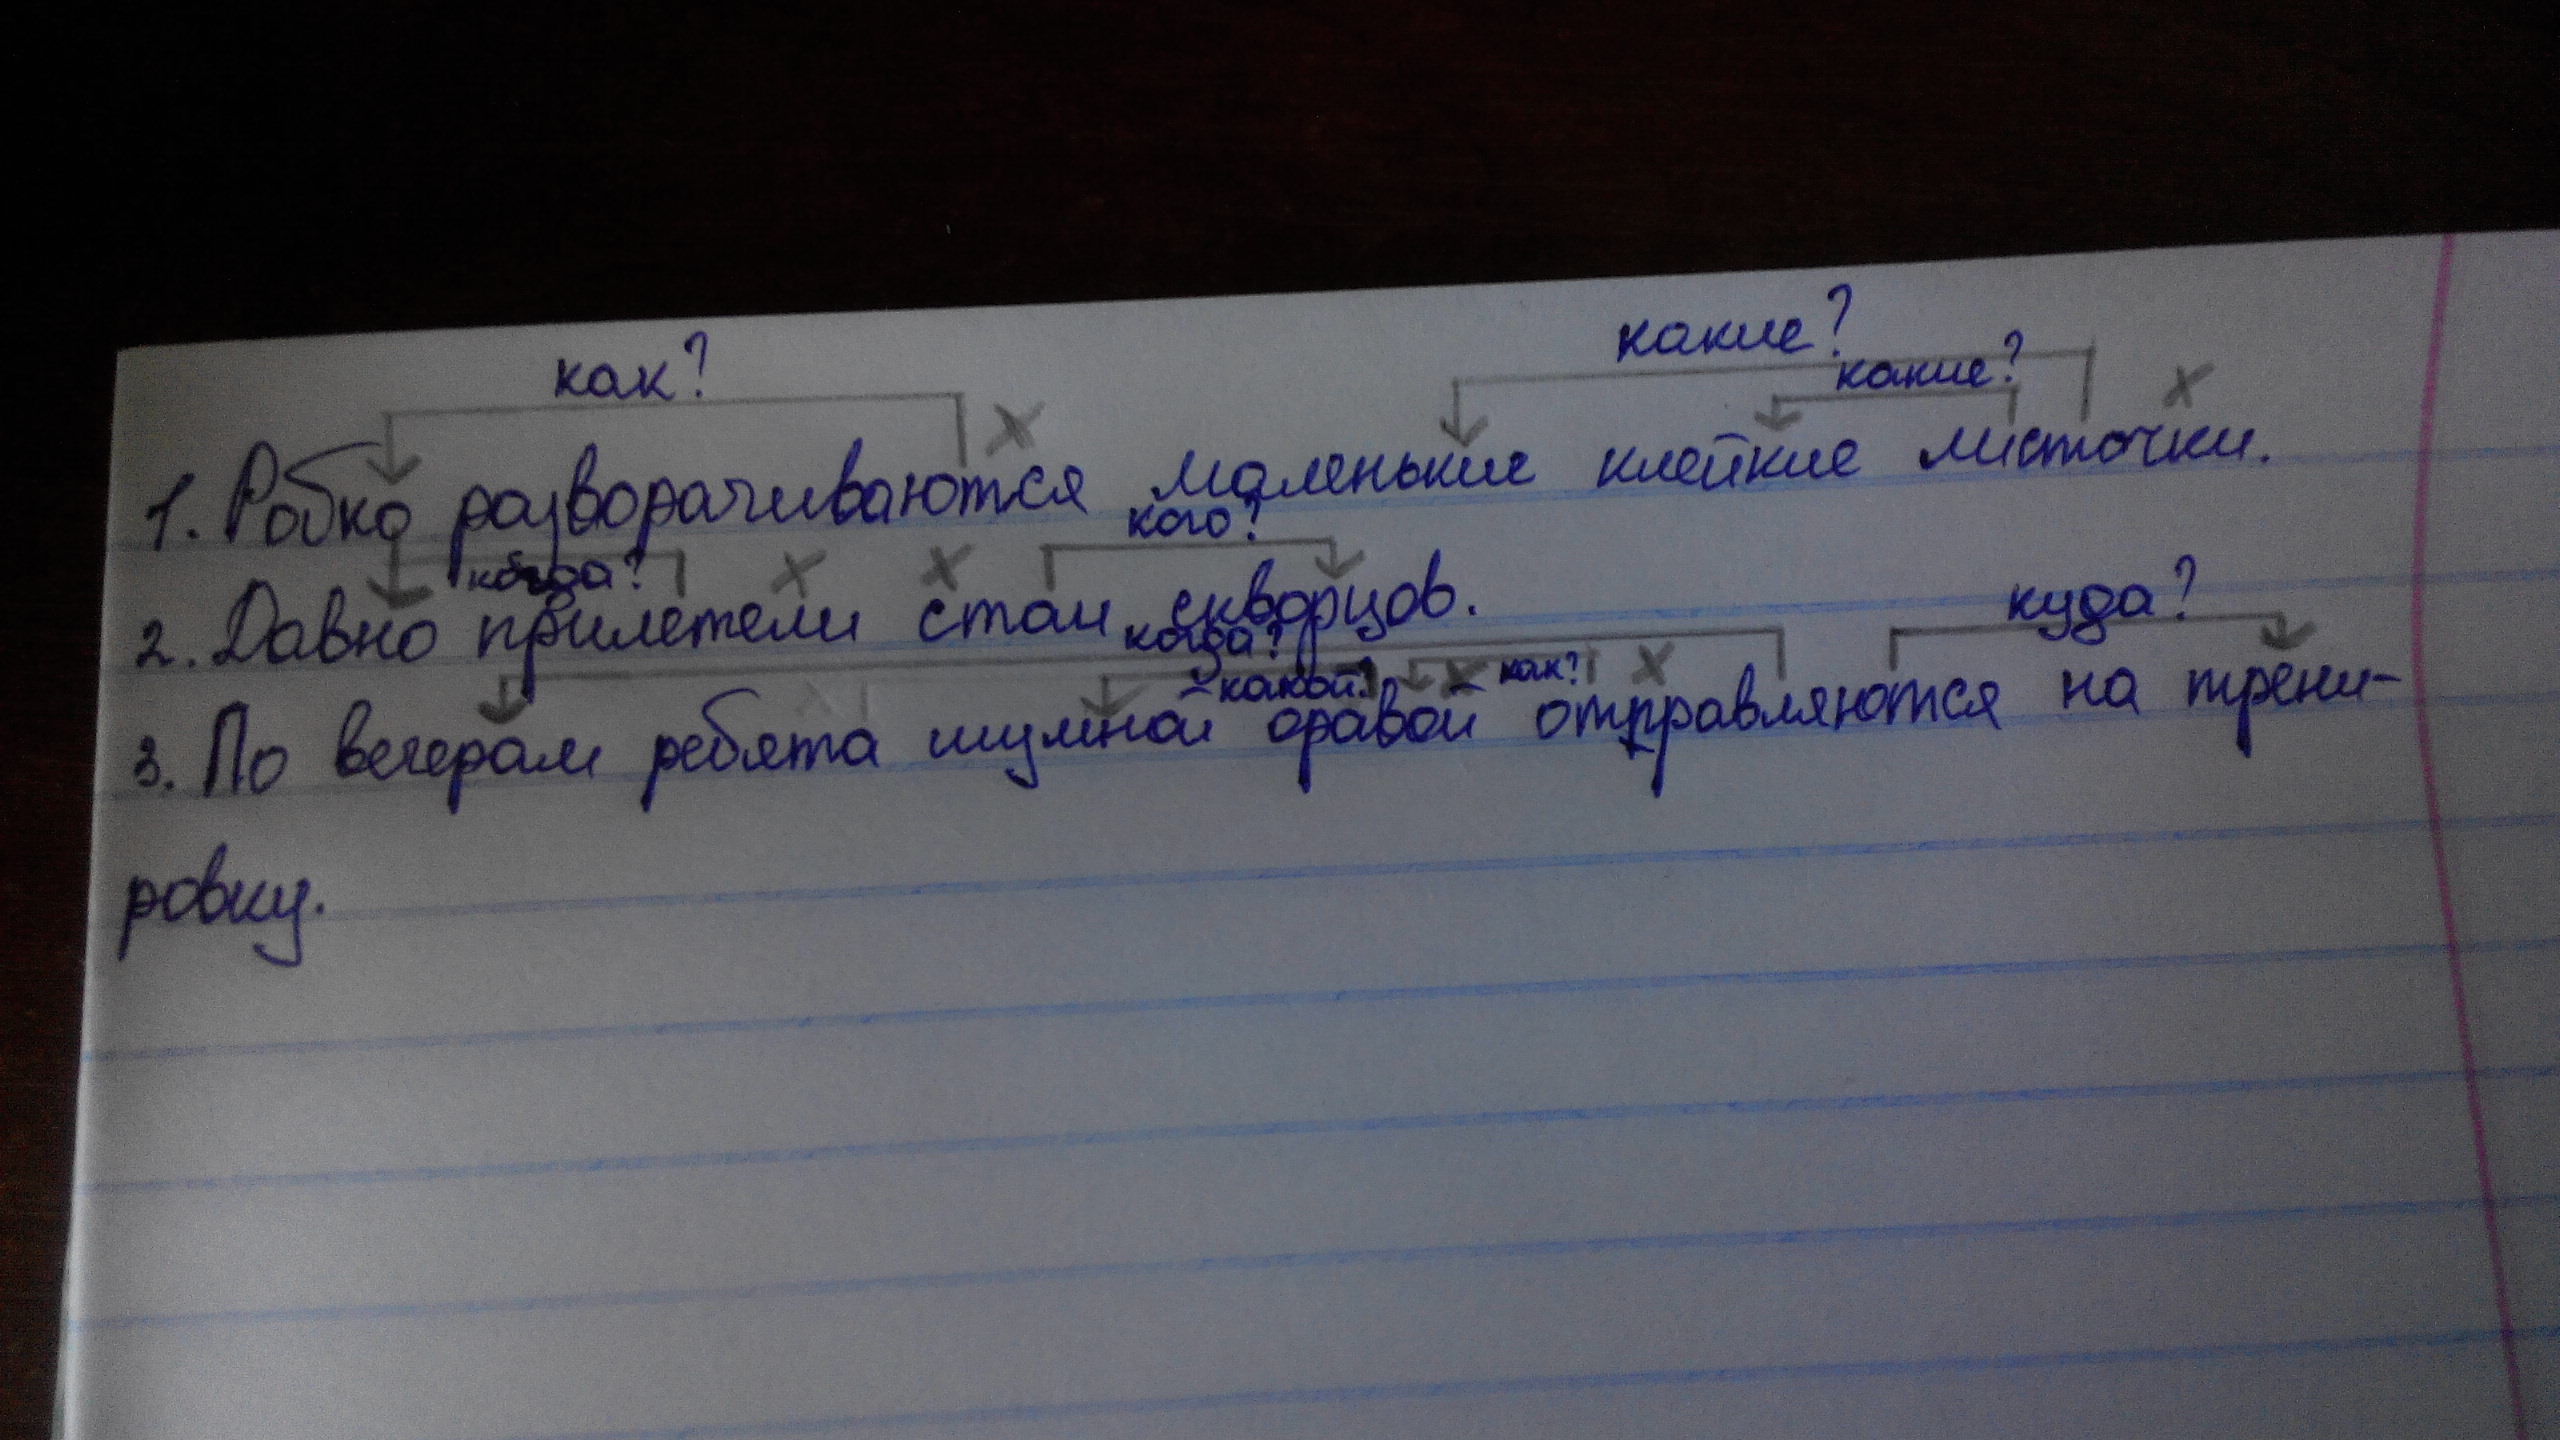 как? какие?
какие?
1. Робко разворачиваются маленькие клейкие листочки.
когда? кого?
2. Давно прилетели стаи скворцов.
когда? куда?
какой? как?
3. По вечерам ребята шумной оравой отправляются на трени-
ровку.